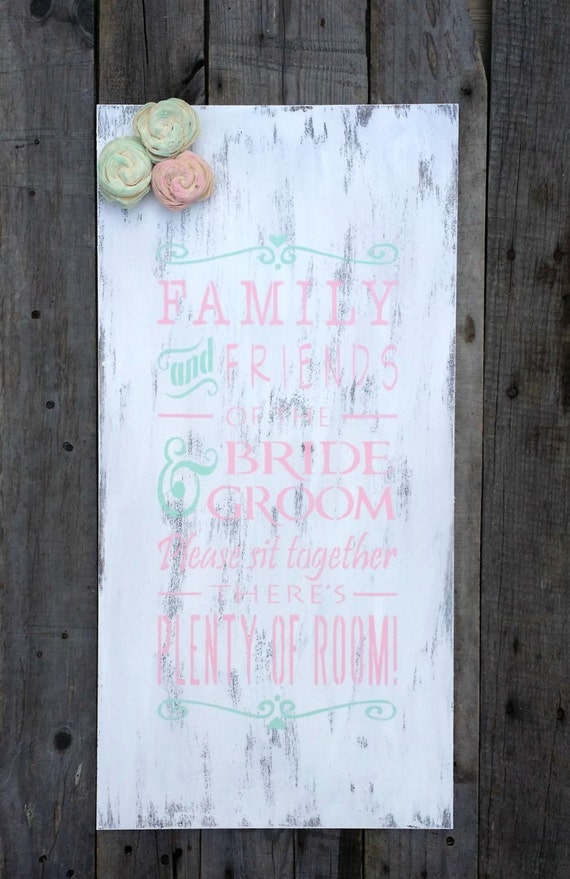 FAMILY
and FRIENDS
OF THE
& BRIDE
GROOM
Please sit together
THERE'S
PLENTY OF ROOM!